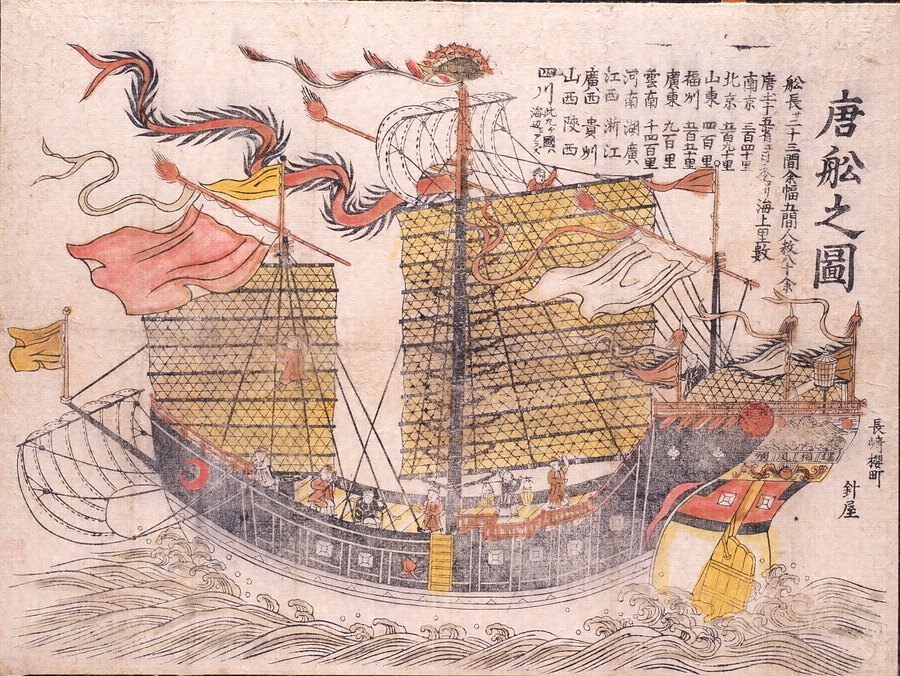 唐舩之圖
舩長サ二十三間余幅五間人数八十余
唐土十五省ヨリ日本ヨリ海上里数
南京 三百四十里
北京 五百九十里
山東 四百里
福州 五百五十里
廣東 九百里
雲南 千四百里
河南 湖廣
江西 浙江
廣西 貴州
山西 陝西
四川 此九ヶ國ハ
長崎櫻町
針屋